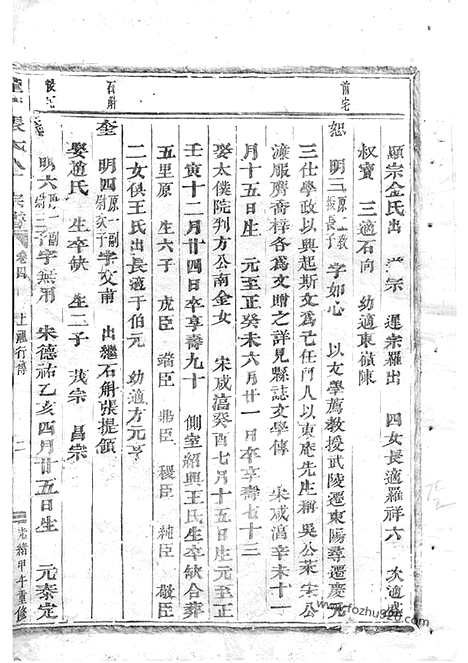 前宅
顯宗金氏出 宗 遲宗羅出 四女長適羅祥六 次適盛
叔寶 三適石向 幼適東嶺陳
恕 明三 字如心 以文學薦教授武陵遷東陽尋遷慶元
三仕學政以興起斯文爲己任門人以東庵先生稱吳公萊宋公
濂服膺喬梓各爲文贈之詳見縣誌文學傳 宋咸淳辛未十一
月十五日生 元至正癸未六月廿一日卒享壽七十三
娶太僕院判方公南金女 宋咸淳癸酉七月十五日生元至正
壬寅十二月廿四日卒享壽九十 側室紹興王氏生卒缺合葬
五里原 生六子 虎臣 臣 鼎臣 稷臣 純臣 敬臣
二女俱王氏出長適于伯元 幼適方元亨
石斛
奎 明四 字文甫 出繼石斛張提領
娶適氏 生卒缺 生二子 茂宗 昌宗
明六 字無用 宋德祐乙亥四月廿五日生 元泰定
卷四
行傳
二
光緒甲午重修
www.fozhu920.com